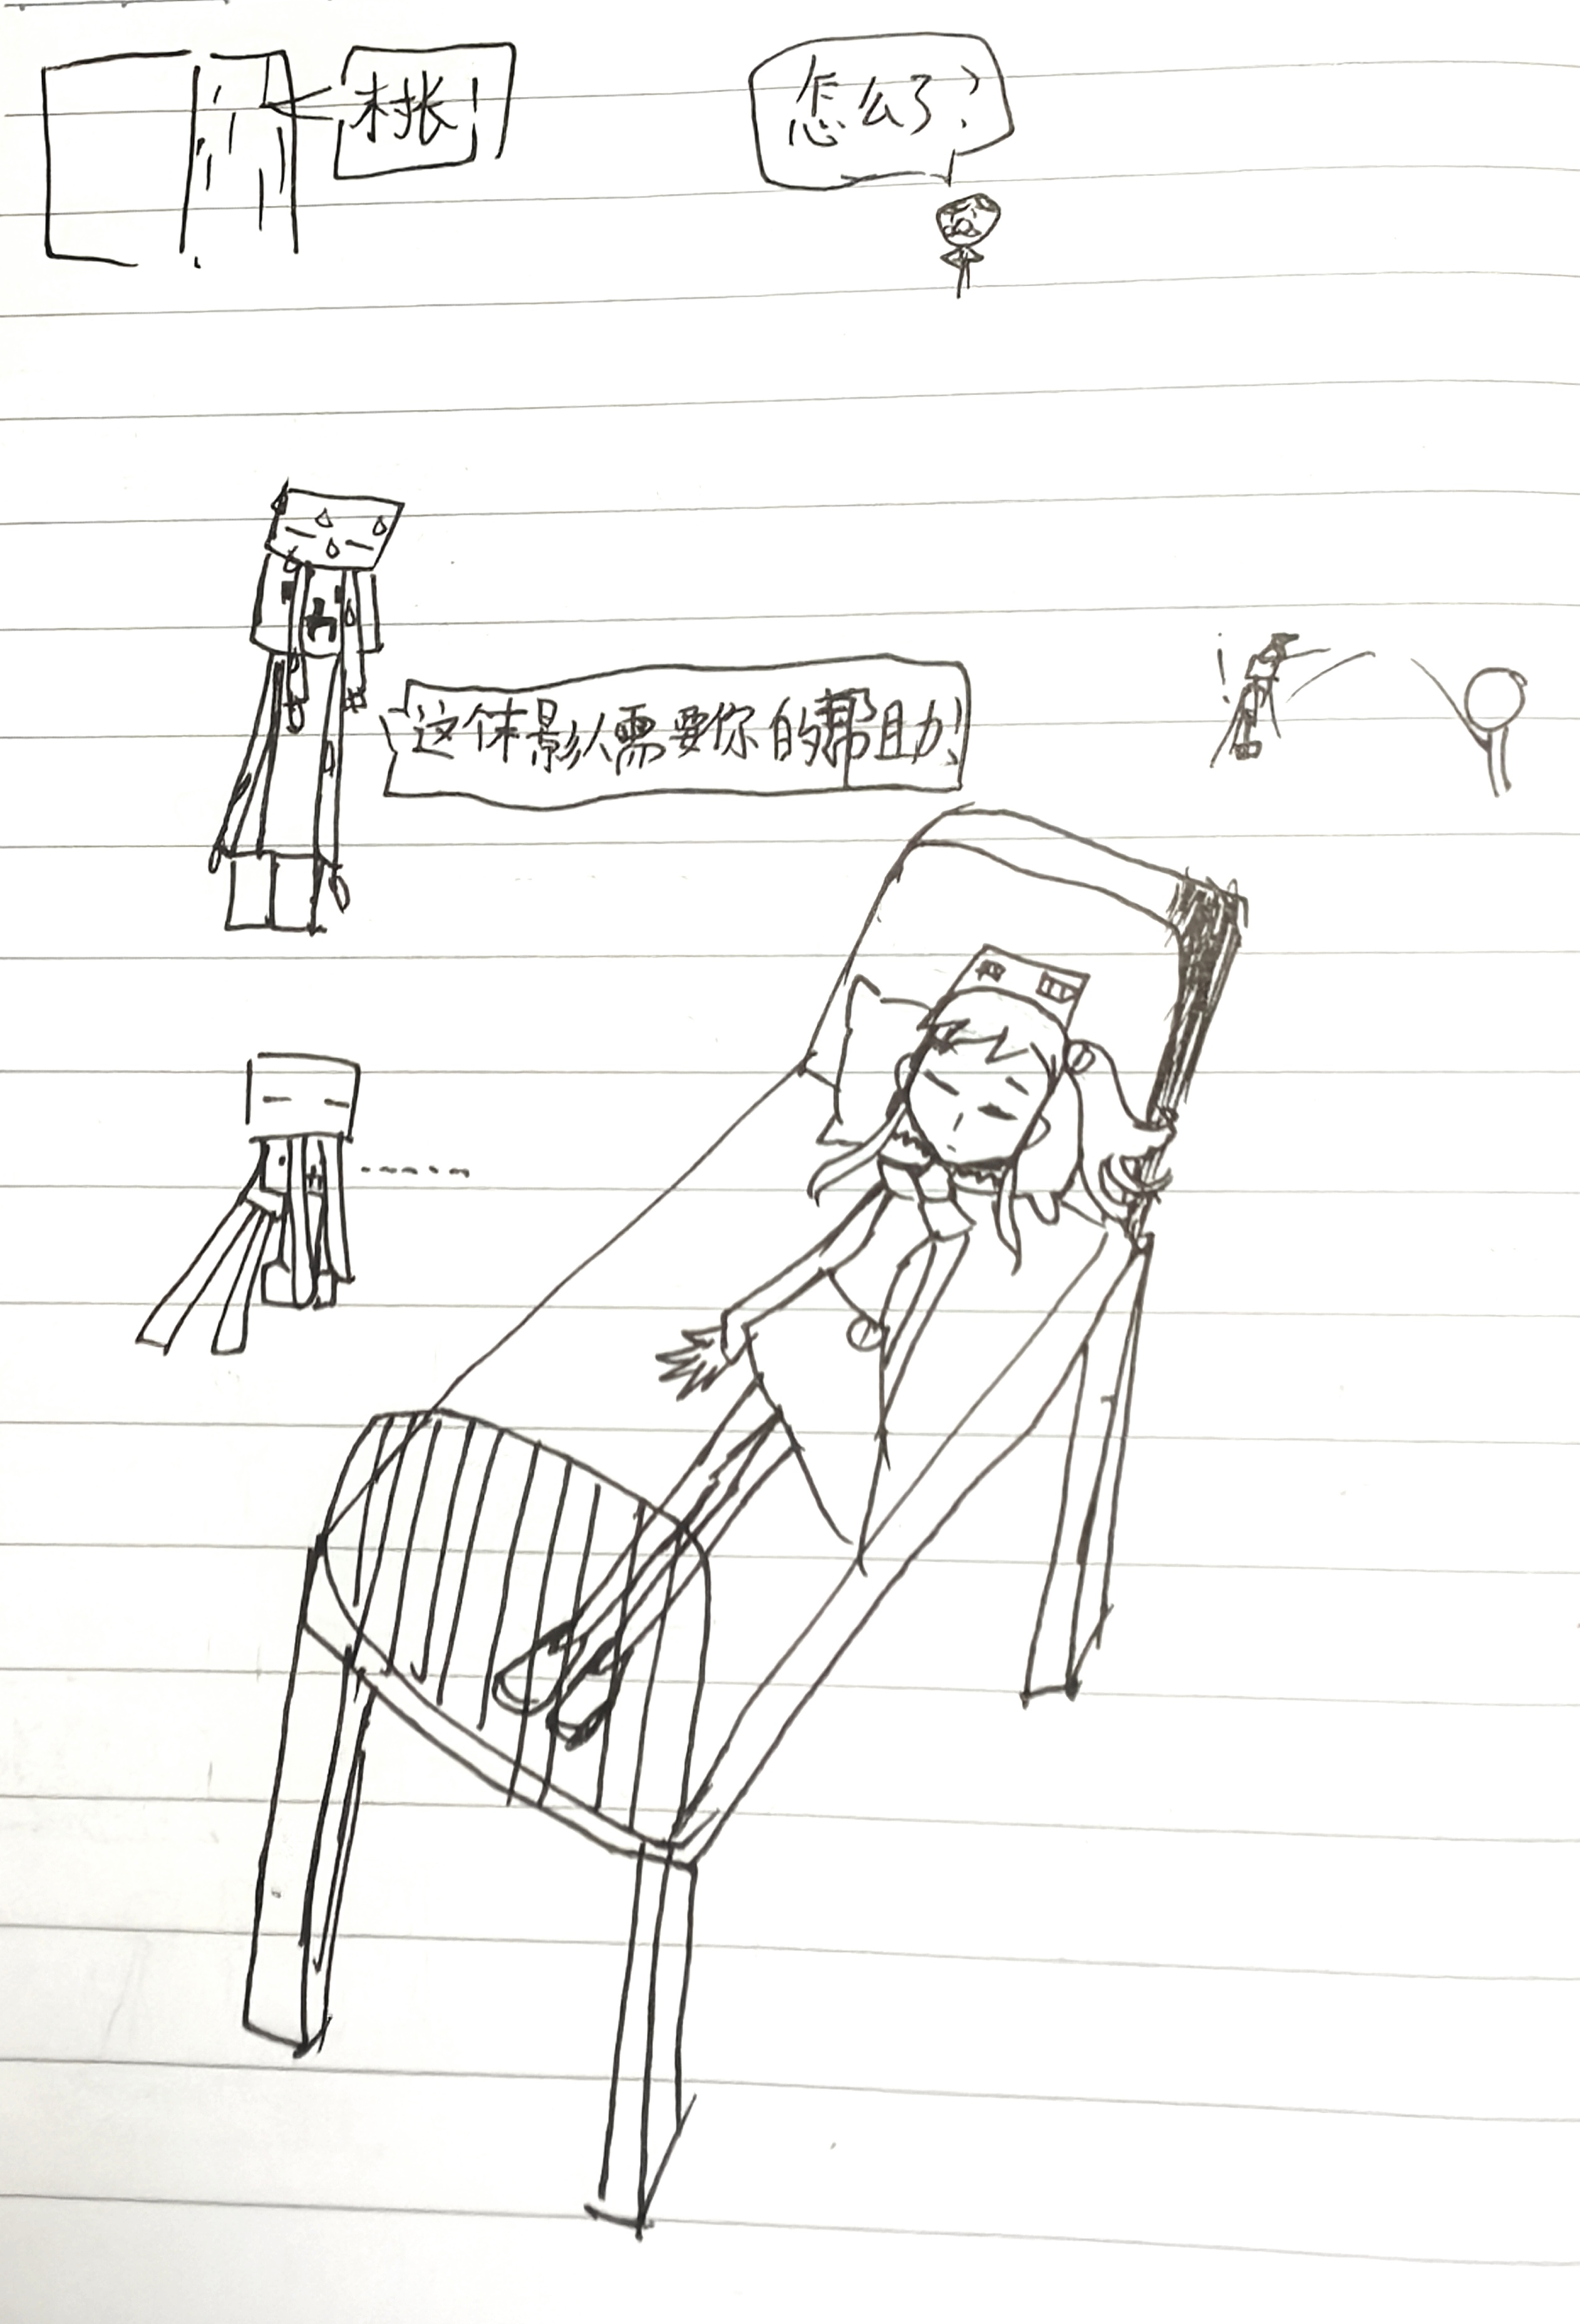 村长!
怎么了?
这个末影人需要你的帮助!